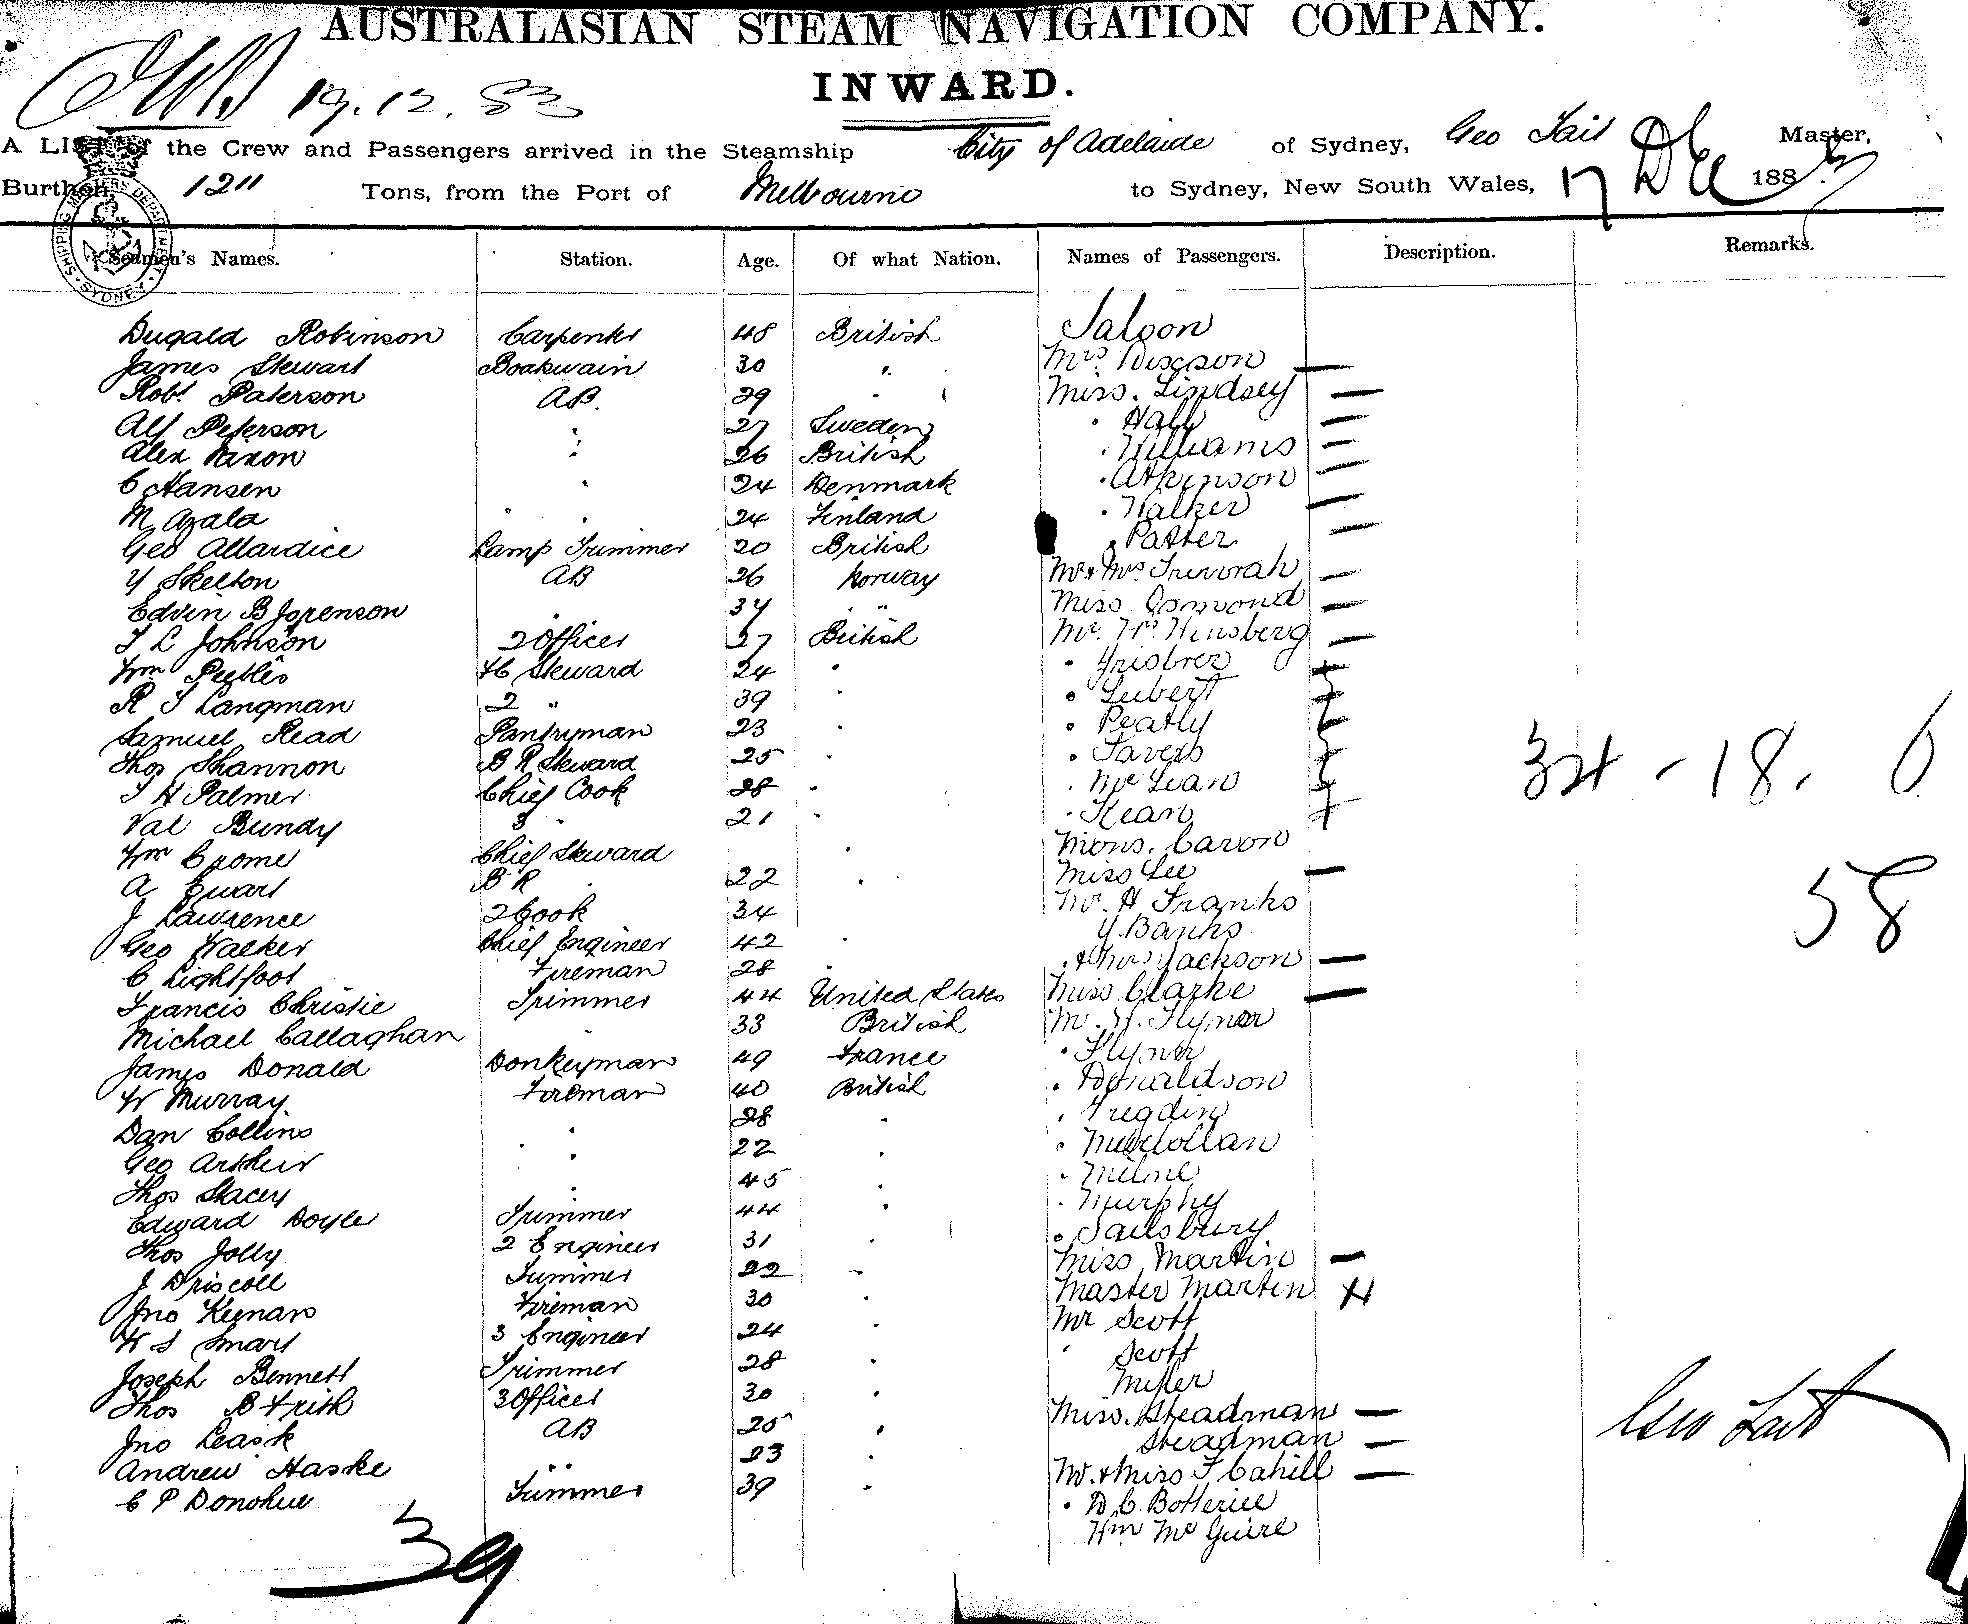 AUSTRALASIAN STEAM NAVIGATION COMPANY.
INWARD.
19.12.83
A LIST of the Crew and Passengers arrived in the Steamship City of Adelaide of Sydney, Geo Tait Master,
Burthen 1211 Tons, from the Port of Melbourne to Sydney, New South Wales, 17 Dec 1883
SHIPPING MASTERS DEPARTMENT SYDNEY
Seamen's Names. Station. Age. Of what Nation. Names of Passengers. Description. Remarks.
Dugald Robinson Carpenter 48 British Saloon
James Stewart Boatswain 30 " Mrs. Dixson —
Robt Paterson AB. 29 " Miss. Lindsey —
Alf Peterson " 27 Sweden " Hall —
Alex Nixon " 26 British " Williams —
C Hansen " 24 Denmark " Atkinson —
M Azala " " 24 Finland " Walker —
Geo Allardice Lamp Trimmer 20 British " Patter —
Y Skelton AB 26 Norway Mr & Mrs Trevorah —
Edvin B Jorenson " 37 " " Miss Osmond —
T L Johnson 2 Officer 27 British Mr. Hinsberg —
Wm Peebles F C Steward 24 "
R T Langman 2 " 39 " " Lubert
Samuel Read Pantryman 23 " " Peatly
Thos Shannon B R Steward 25 " " Tavers
T H Palmer Chief Cook 28 " " Mc Lean
Val Bundy 3 " 21 " " Kean
Wm Crome Chief Steward " Mons. Caron
A Ewart B R " 22 " Miss Lee —
J Lawrence 2 Cook 34 Mr. H Franks
Geo Walker Chief Engineer 42 " Y. Banks
C Lightfoot Fireman 28 " " & Mrs Jackson —
Francis Christie Trimmer 44 United States Miss Clarke —
Michael Callaghan " 33 British Mr. Flynn
James Donald Donkeyman 49 France " Flynn
W Murray Fireman 40 British " Donaldson
Dan Collins " 28 "
Geo Arthur " 22 "
Thos Stacey " 45 " " Milne
Edward Doyle Trimmer 44 " " Murphy
Thos Jolly 2 Engineer 31 " " Sailsbury
J Driscoll Trimmer 22 " Miss Martin —
Jno Keenan Fireman 30 " Master Martin
W S Smart 3 Engineer 24 " Mr Scott
Joseph Bennett Trimmer 28 " " Scott
Thos B Frith 3 Officer 30 " Miller
Jno Leask AB 25 " Miss. Steadman —
Andrew Haske " " 23 " Steadman —
C P Donohue Trimmer 39 " Mr. & Miss F Cahill —
" D. C. Botterill
Wm Mc Guire
34 - 18. 6
58
Geo Tait
39